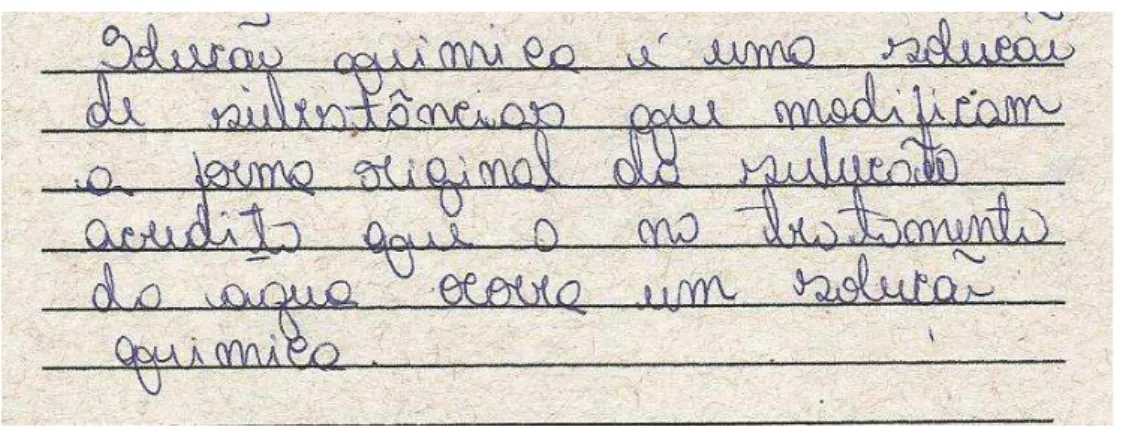 Solução quimica é uma solução
de substâncias que modificam
a forma original da
acredito que o no tratamento
da agua ocorra um solução
quimica.